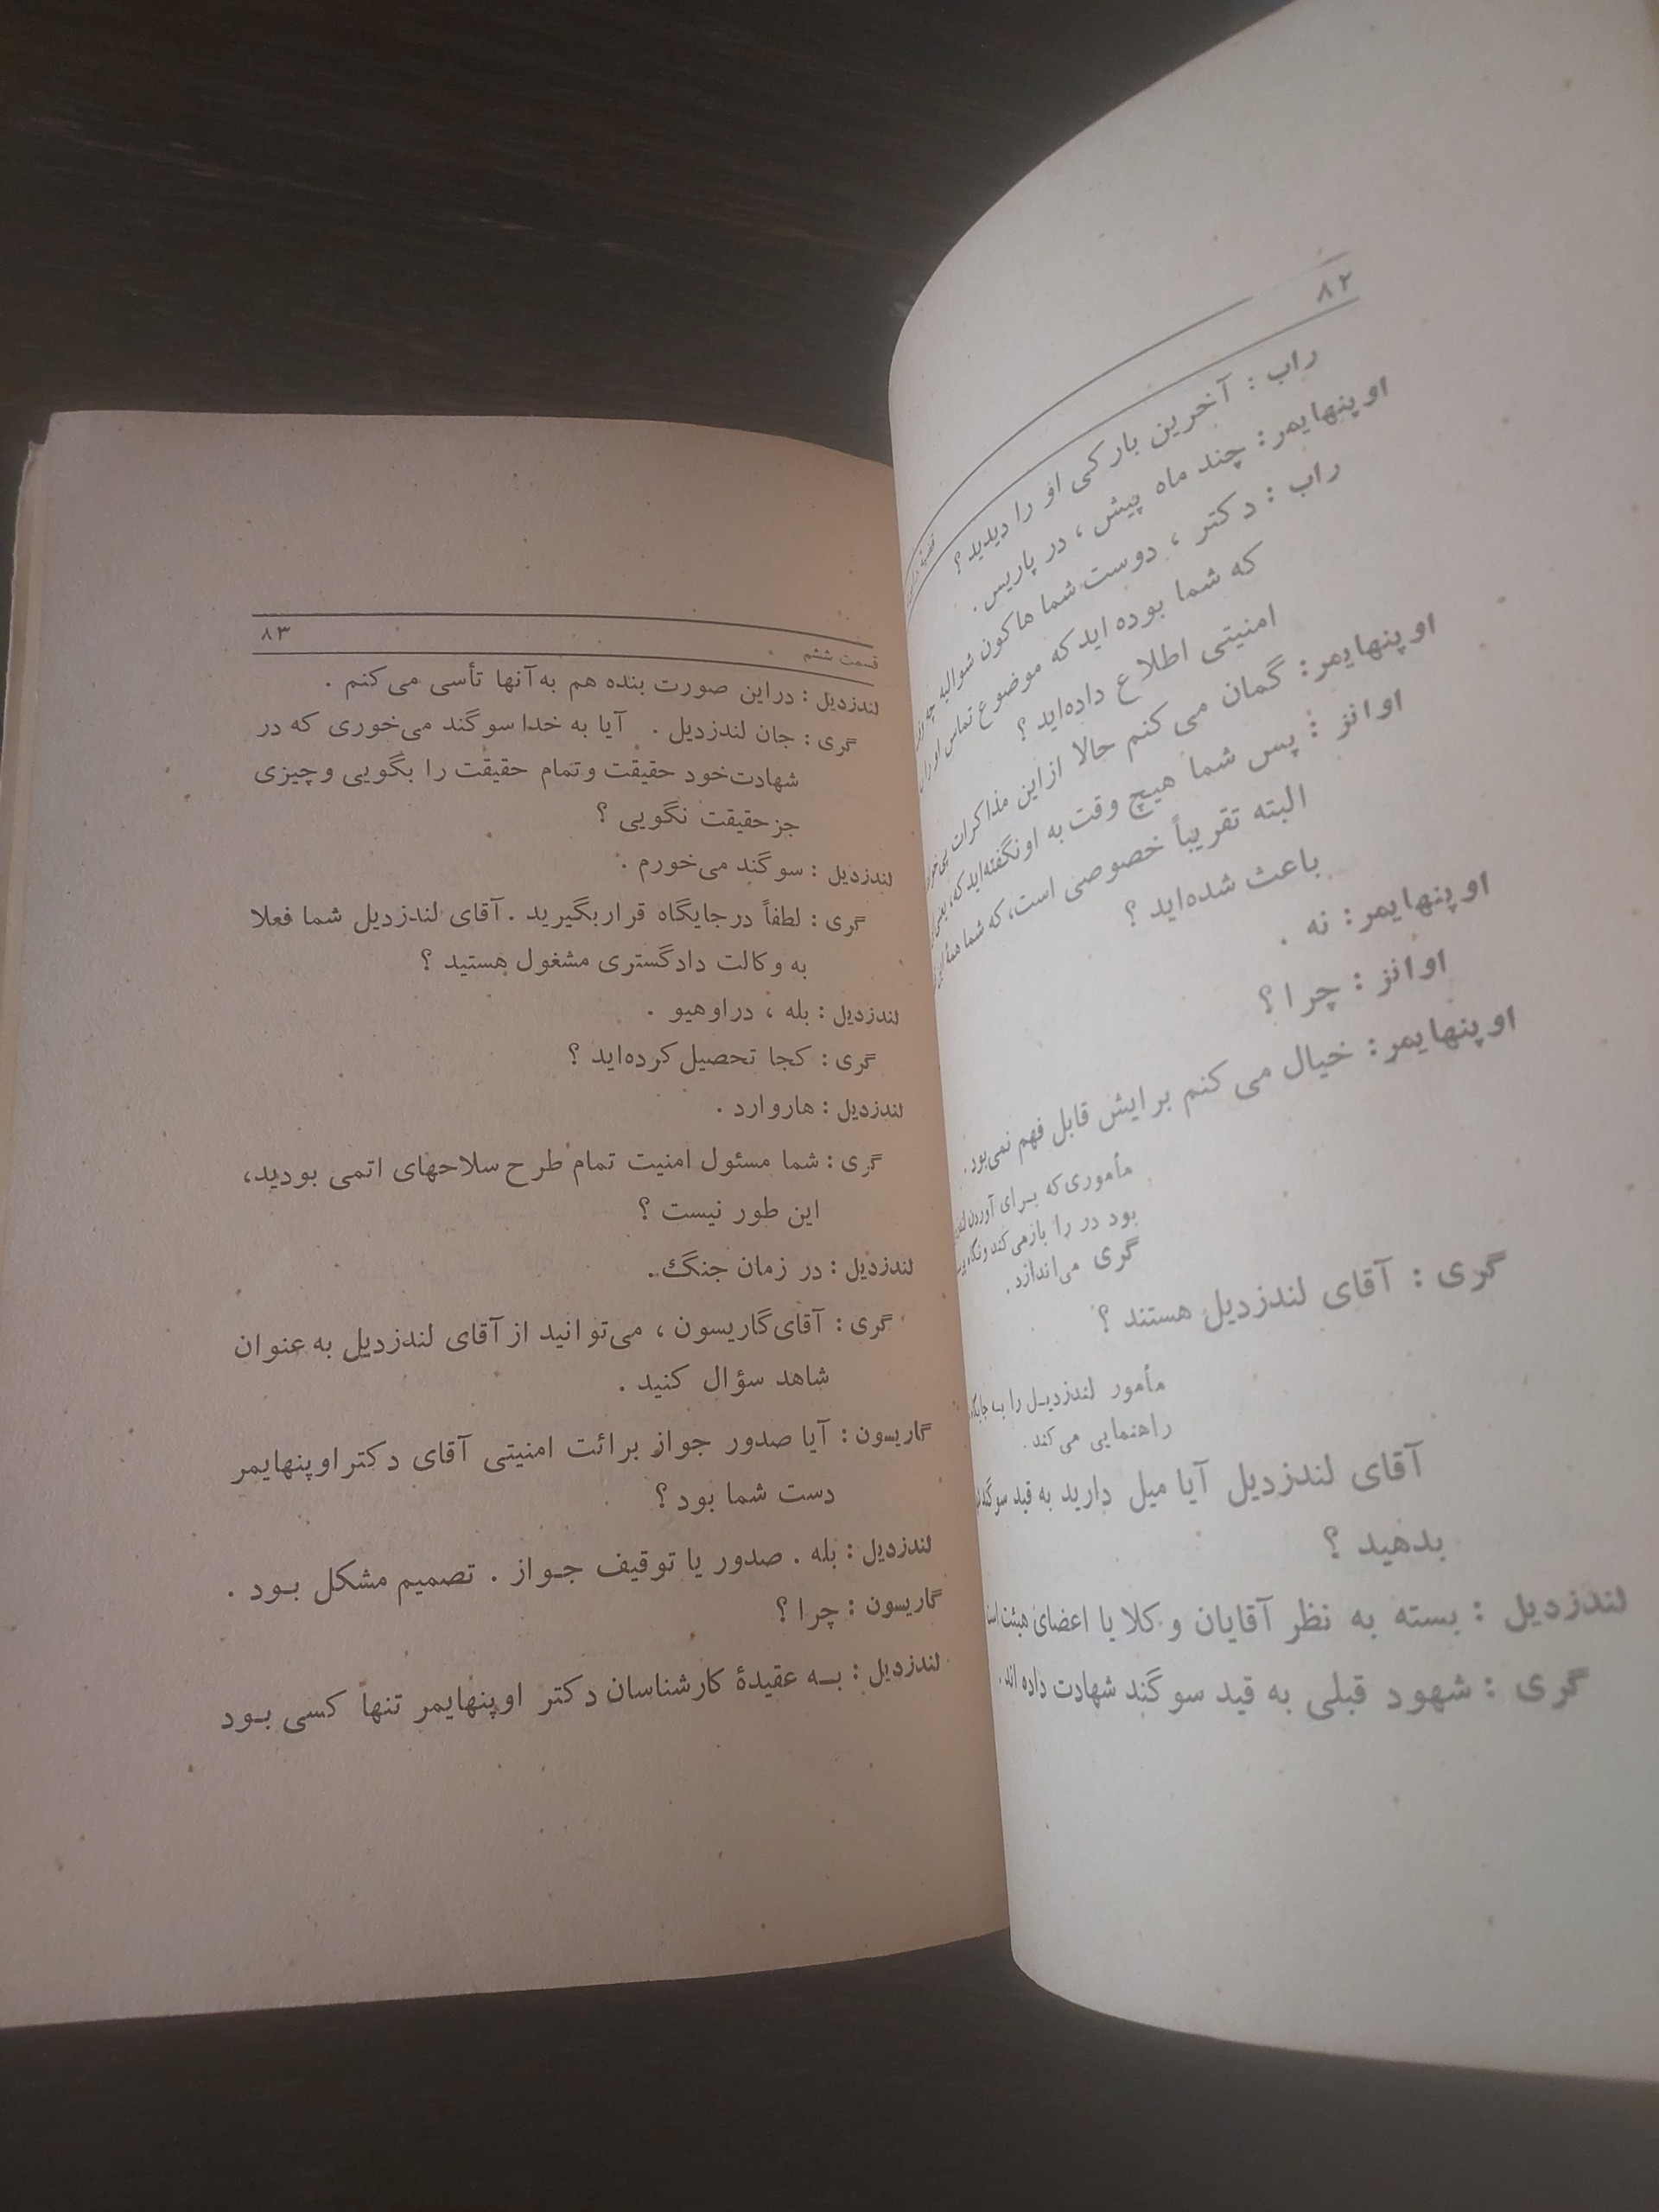 ۸۲
راب : آخرین بار کی او را دیدید ؟
اوپنهایمر : چند ماه پیش ، در پاریس .
راب : دکتر ، دوست شما هاکون شوالیه چه
که شما بوده اید که موضوع تماس او را
امنیتی اطلاع داده‌اید ؟
اوپنهایمر : گمان می کنم حالا از این مذاکرات
اوانز : پس شما هیچ وقت به او نگفته‌اید که،
البته تقریباً خصوصی است، که شما
باعث شده‌اید ؟
اوپنهایمر : نه .
اوانز : چرا ؟
اوپنهایمر : خیال می کنم برایش قابل فهم نمی‌بود .
مأموری که برای آوردن
بود در را باز می کند و نگاه
گری می‌اندازد .
گری : آقای لندزدیل هستند ؟
مأمور لندزدیل را به
راهنمایی می کند .
آقای لندزدیل آیا میل دارید به قید
بدهید ؟
لندزدیل : بسته به نظر آقایان وکلا یا اعضای هیئت
گری : شهود قبلی به قید سوگند شهادت داده اند .
قسمت ششم ۸۳
لندزدیل : دراین صورت بنده هم به‌آنها تأسی می‌کنم .
گری : جان لندزدیل . آیا به خدا سوگند می‌خوری که در
شهادت‌خود حقیقت و تمام حقیقت را بگویی و چیزی
جز حقیقت نگویی ؟
لندزدیل : سوگند می‌خورم .
گری : لطفاً در جایگاه قرار بگیرید . آقای لندزدیل شما فعلا
به وکالت دادگستری مشغول هستید ؟
لندزدیل : بله ، در اوهیو .
گری : کجا تحصیل کرده‌اید ؟
لندزدیل : هاروارد .
گری : شما مسئول امنیت تمام طرح سلاحهای اتمی بودید،
این طور نیست ؟
لندزدیل : در زمان جنگ .
گری : آقای گاریسون ، می‌توانید از آقای لندزدیل به عنوان
شاهد سؤال کنید .
گاریسون : آیا صدور جواز برائت امنیتی آقای دکتر اوپنهایمر
دست شما بود ؟
لندزدیل : بله . صدور یا توقیف جواز . تصمیم مشکل بود .
گاریسون : چرا ؟
لندزدیل : به عقیدهٔ کارشناسان دکتر اوپنهایمر تنها کسی بود